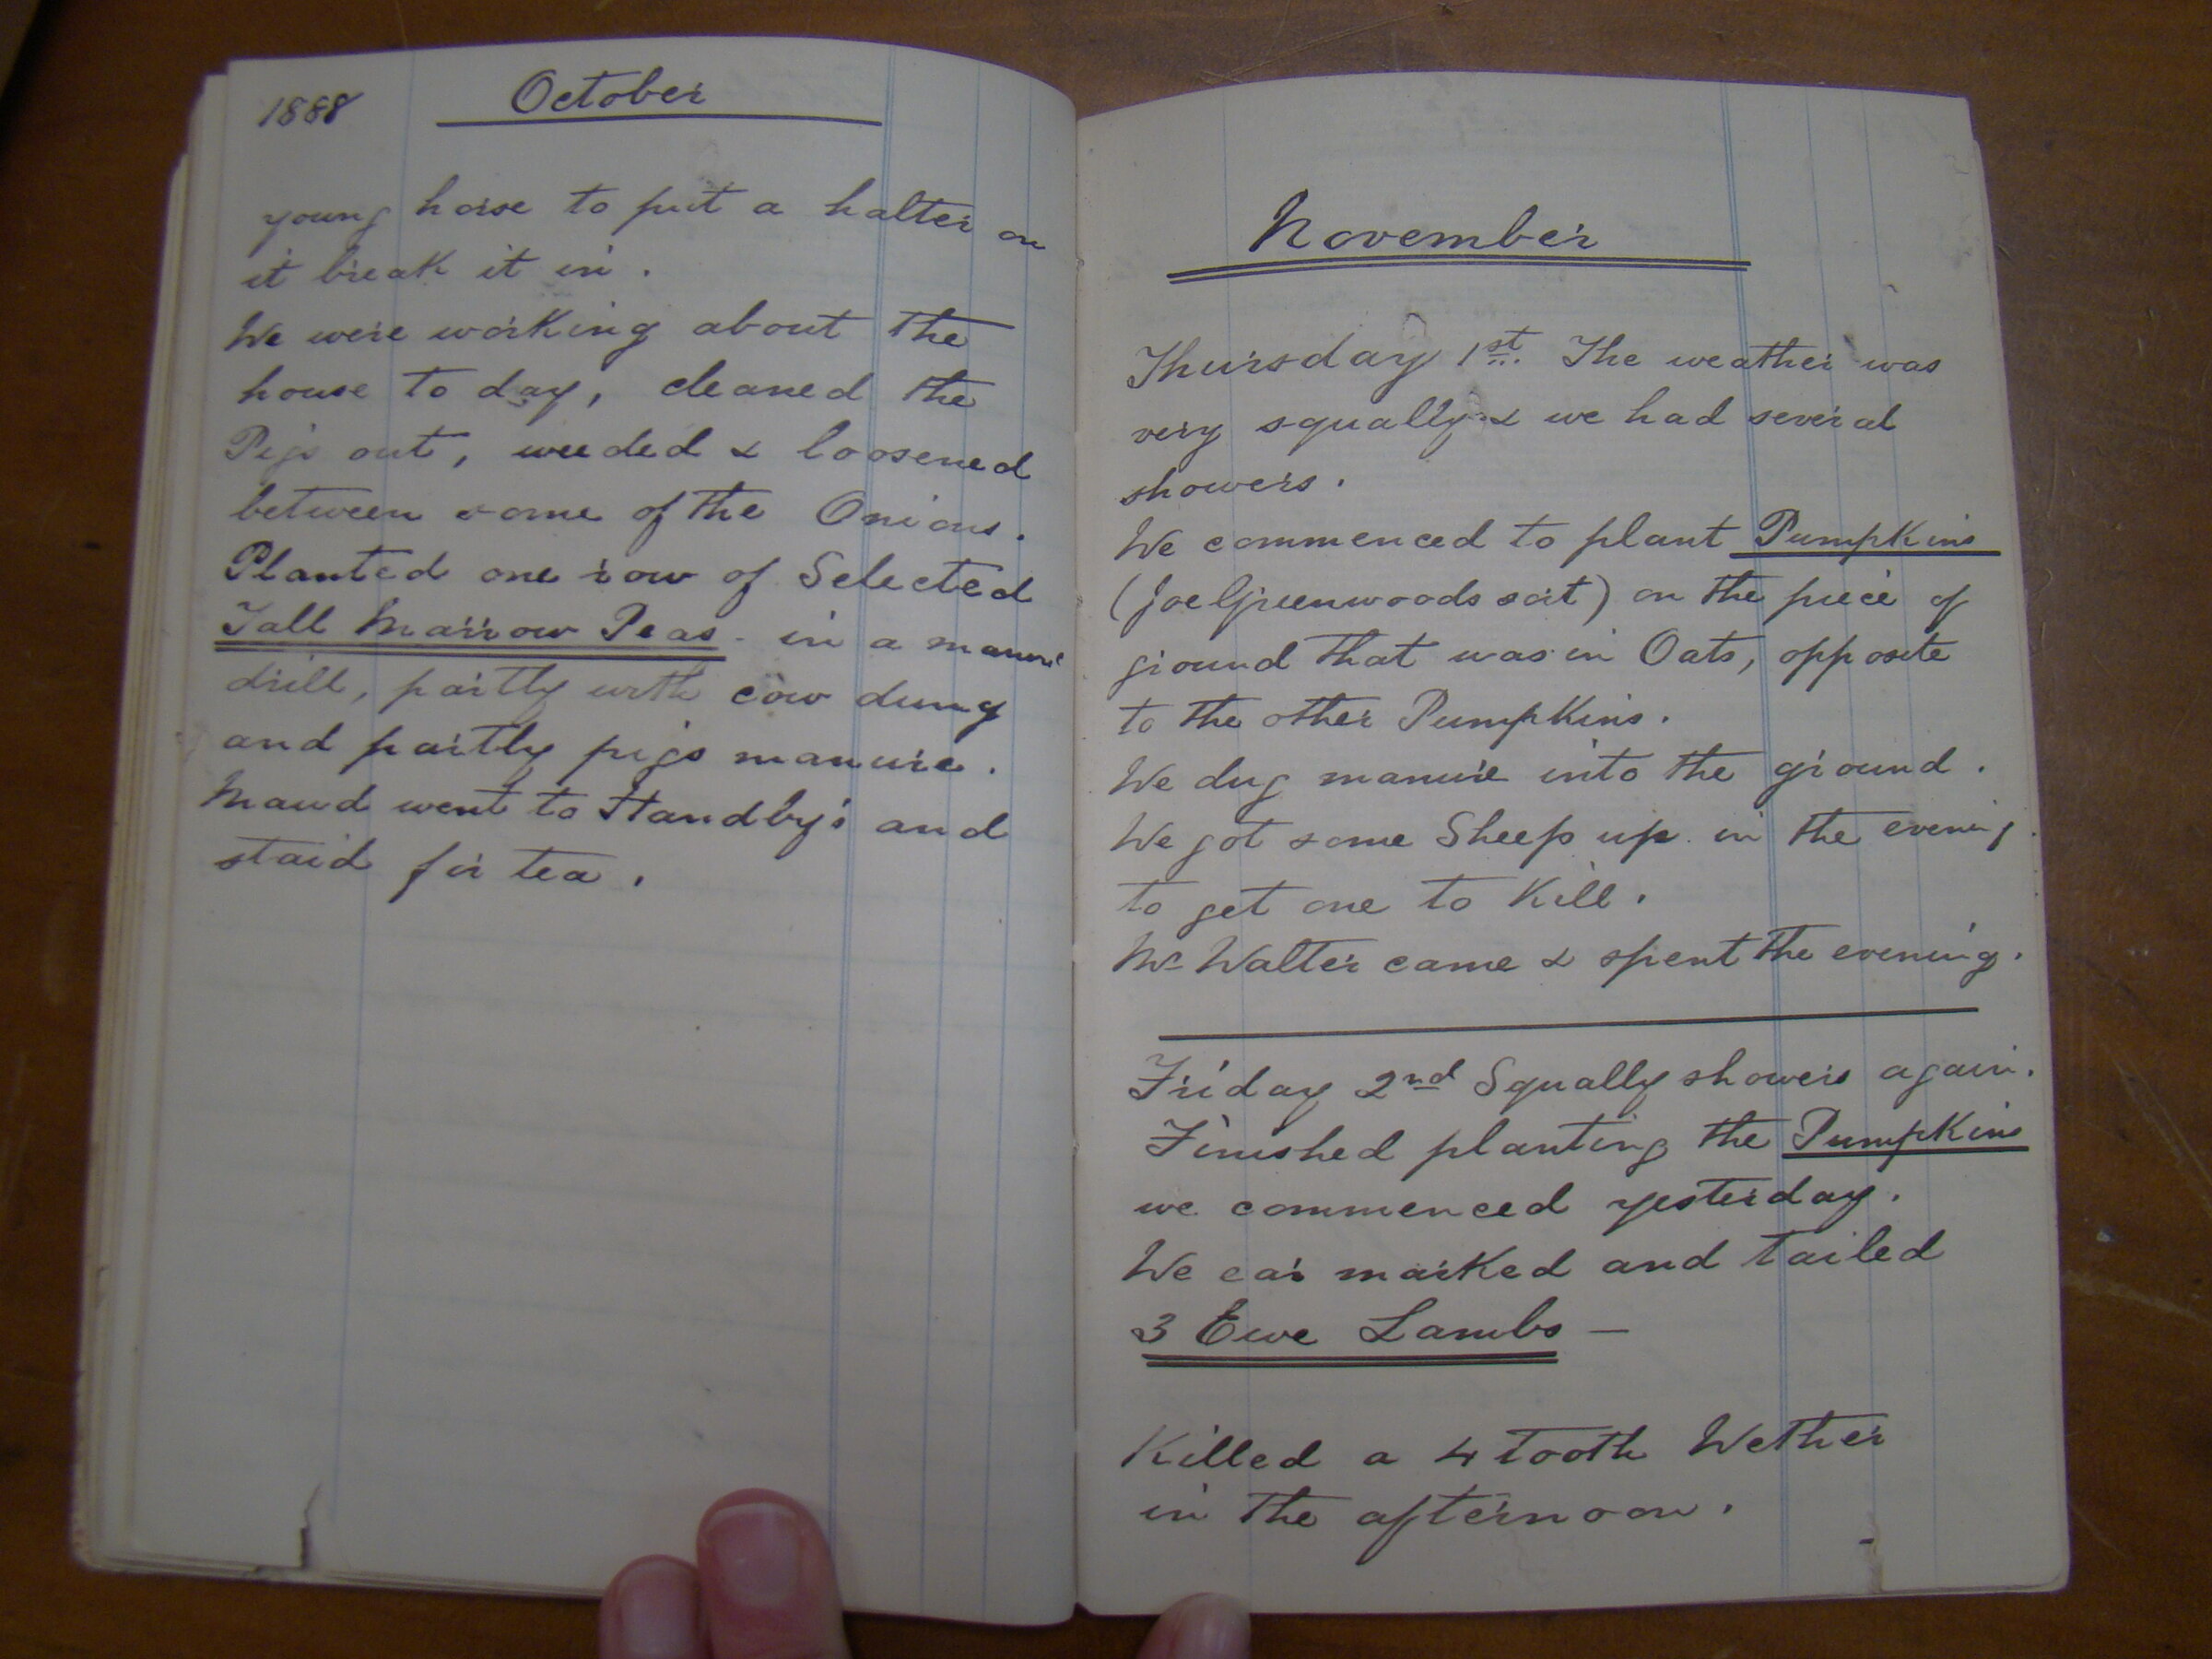 1888 October
young horse to put a halter on
it break it in .
We were working about the
house to day, cleaned the
Pigs out, weeded & loosened
between some of the Onions.
Planted one row of Selected
Tall Marrow Peas - in a manure
drill, partly with cow dung
and partly pigs manure.
Maud went to Standby's and
staid for tea.
November
Thursday 1st. The weather was
very squally & we had several
showers.
We commenced to plant Pumpkins
(Joe Greenwoods sort) on the piece of
ground that was in Oats, opposite
to the other Pumpkins.
We dug manure into the ground.
We got some Sheep up in the evening
to get one to Kill.
Mr Walter came & spent the evening.
Friday 2nd Squally showers again.
Finished planting the Pumpkins
we commenced yesterday.
We ear marked and tailed
3 Ewe Lambs —
Killed a 4 tooth Wether
in the afternoon.